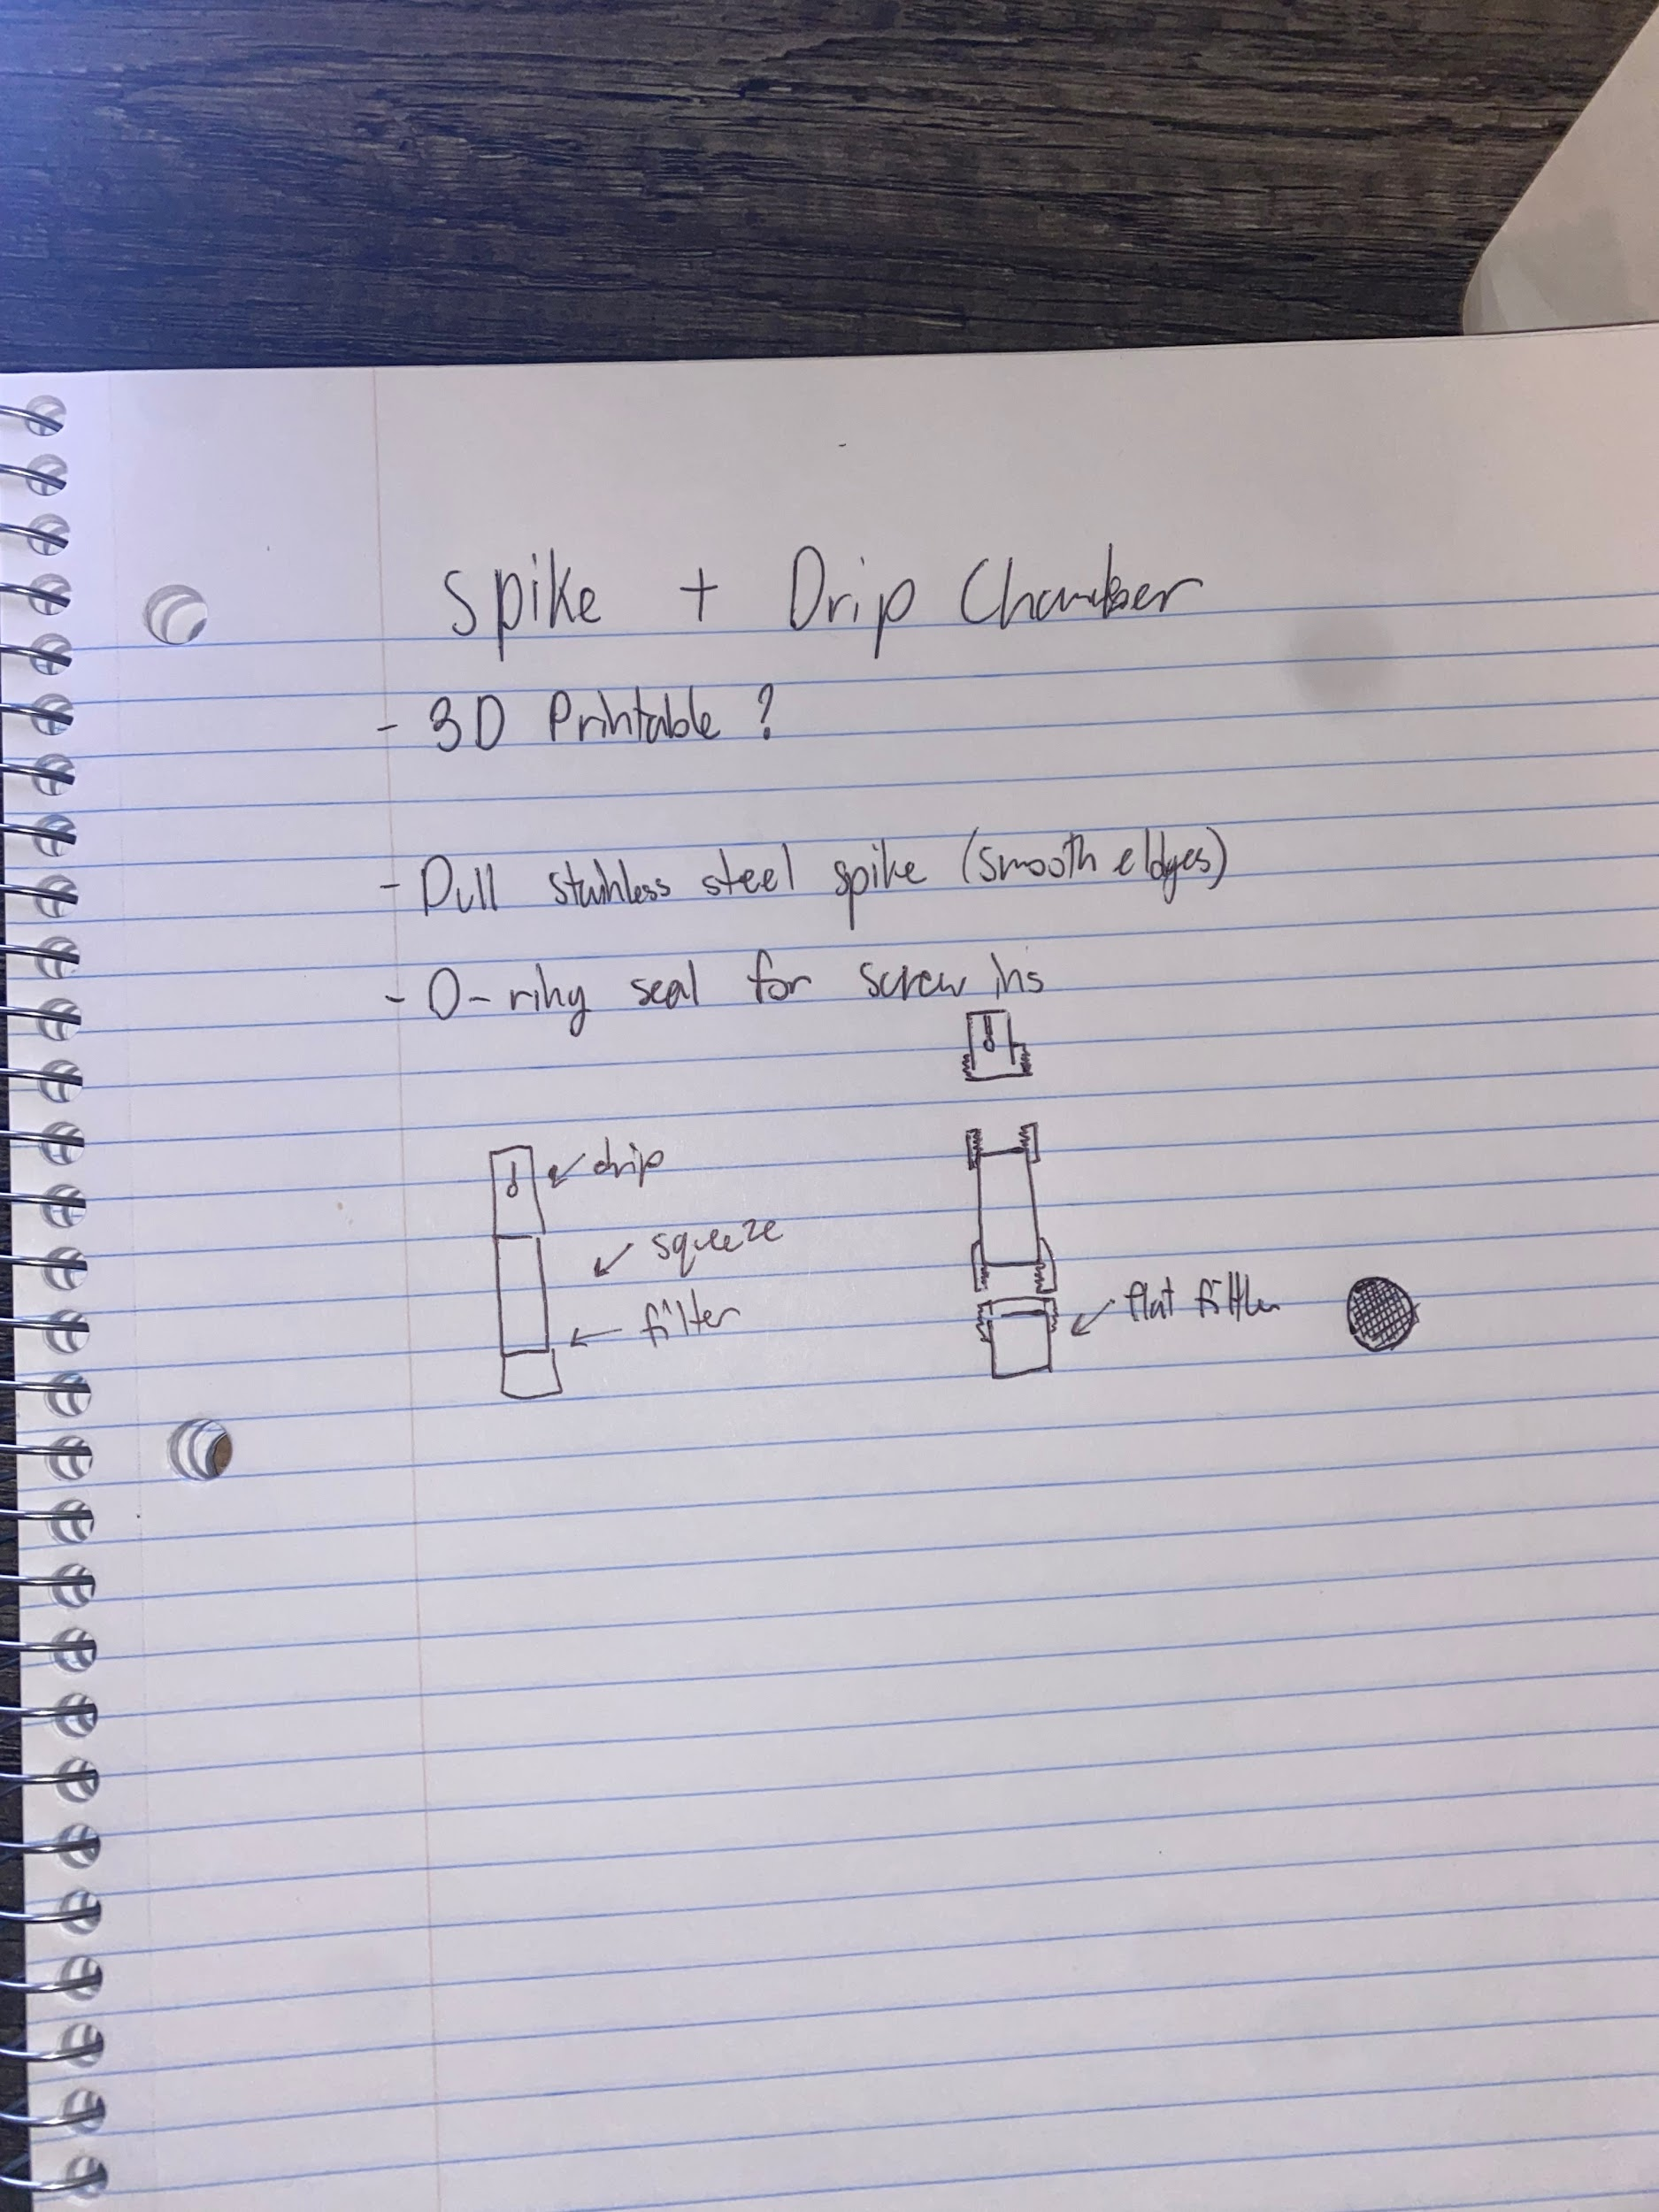 Spike + Drip Chamber
- 3D Printable ?
- Dull stainless steel spike (smooth eldges)
- O-ring seal for screw ins
drip
squeeze
filter
flat filtler